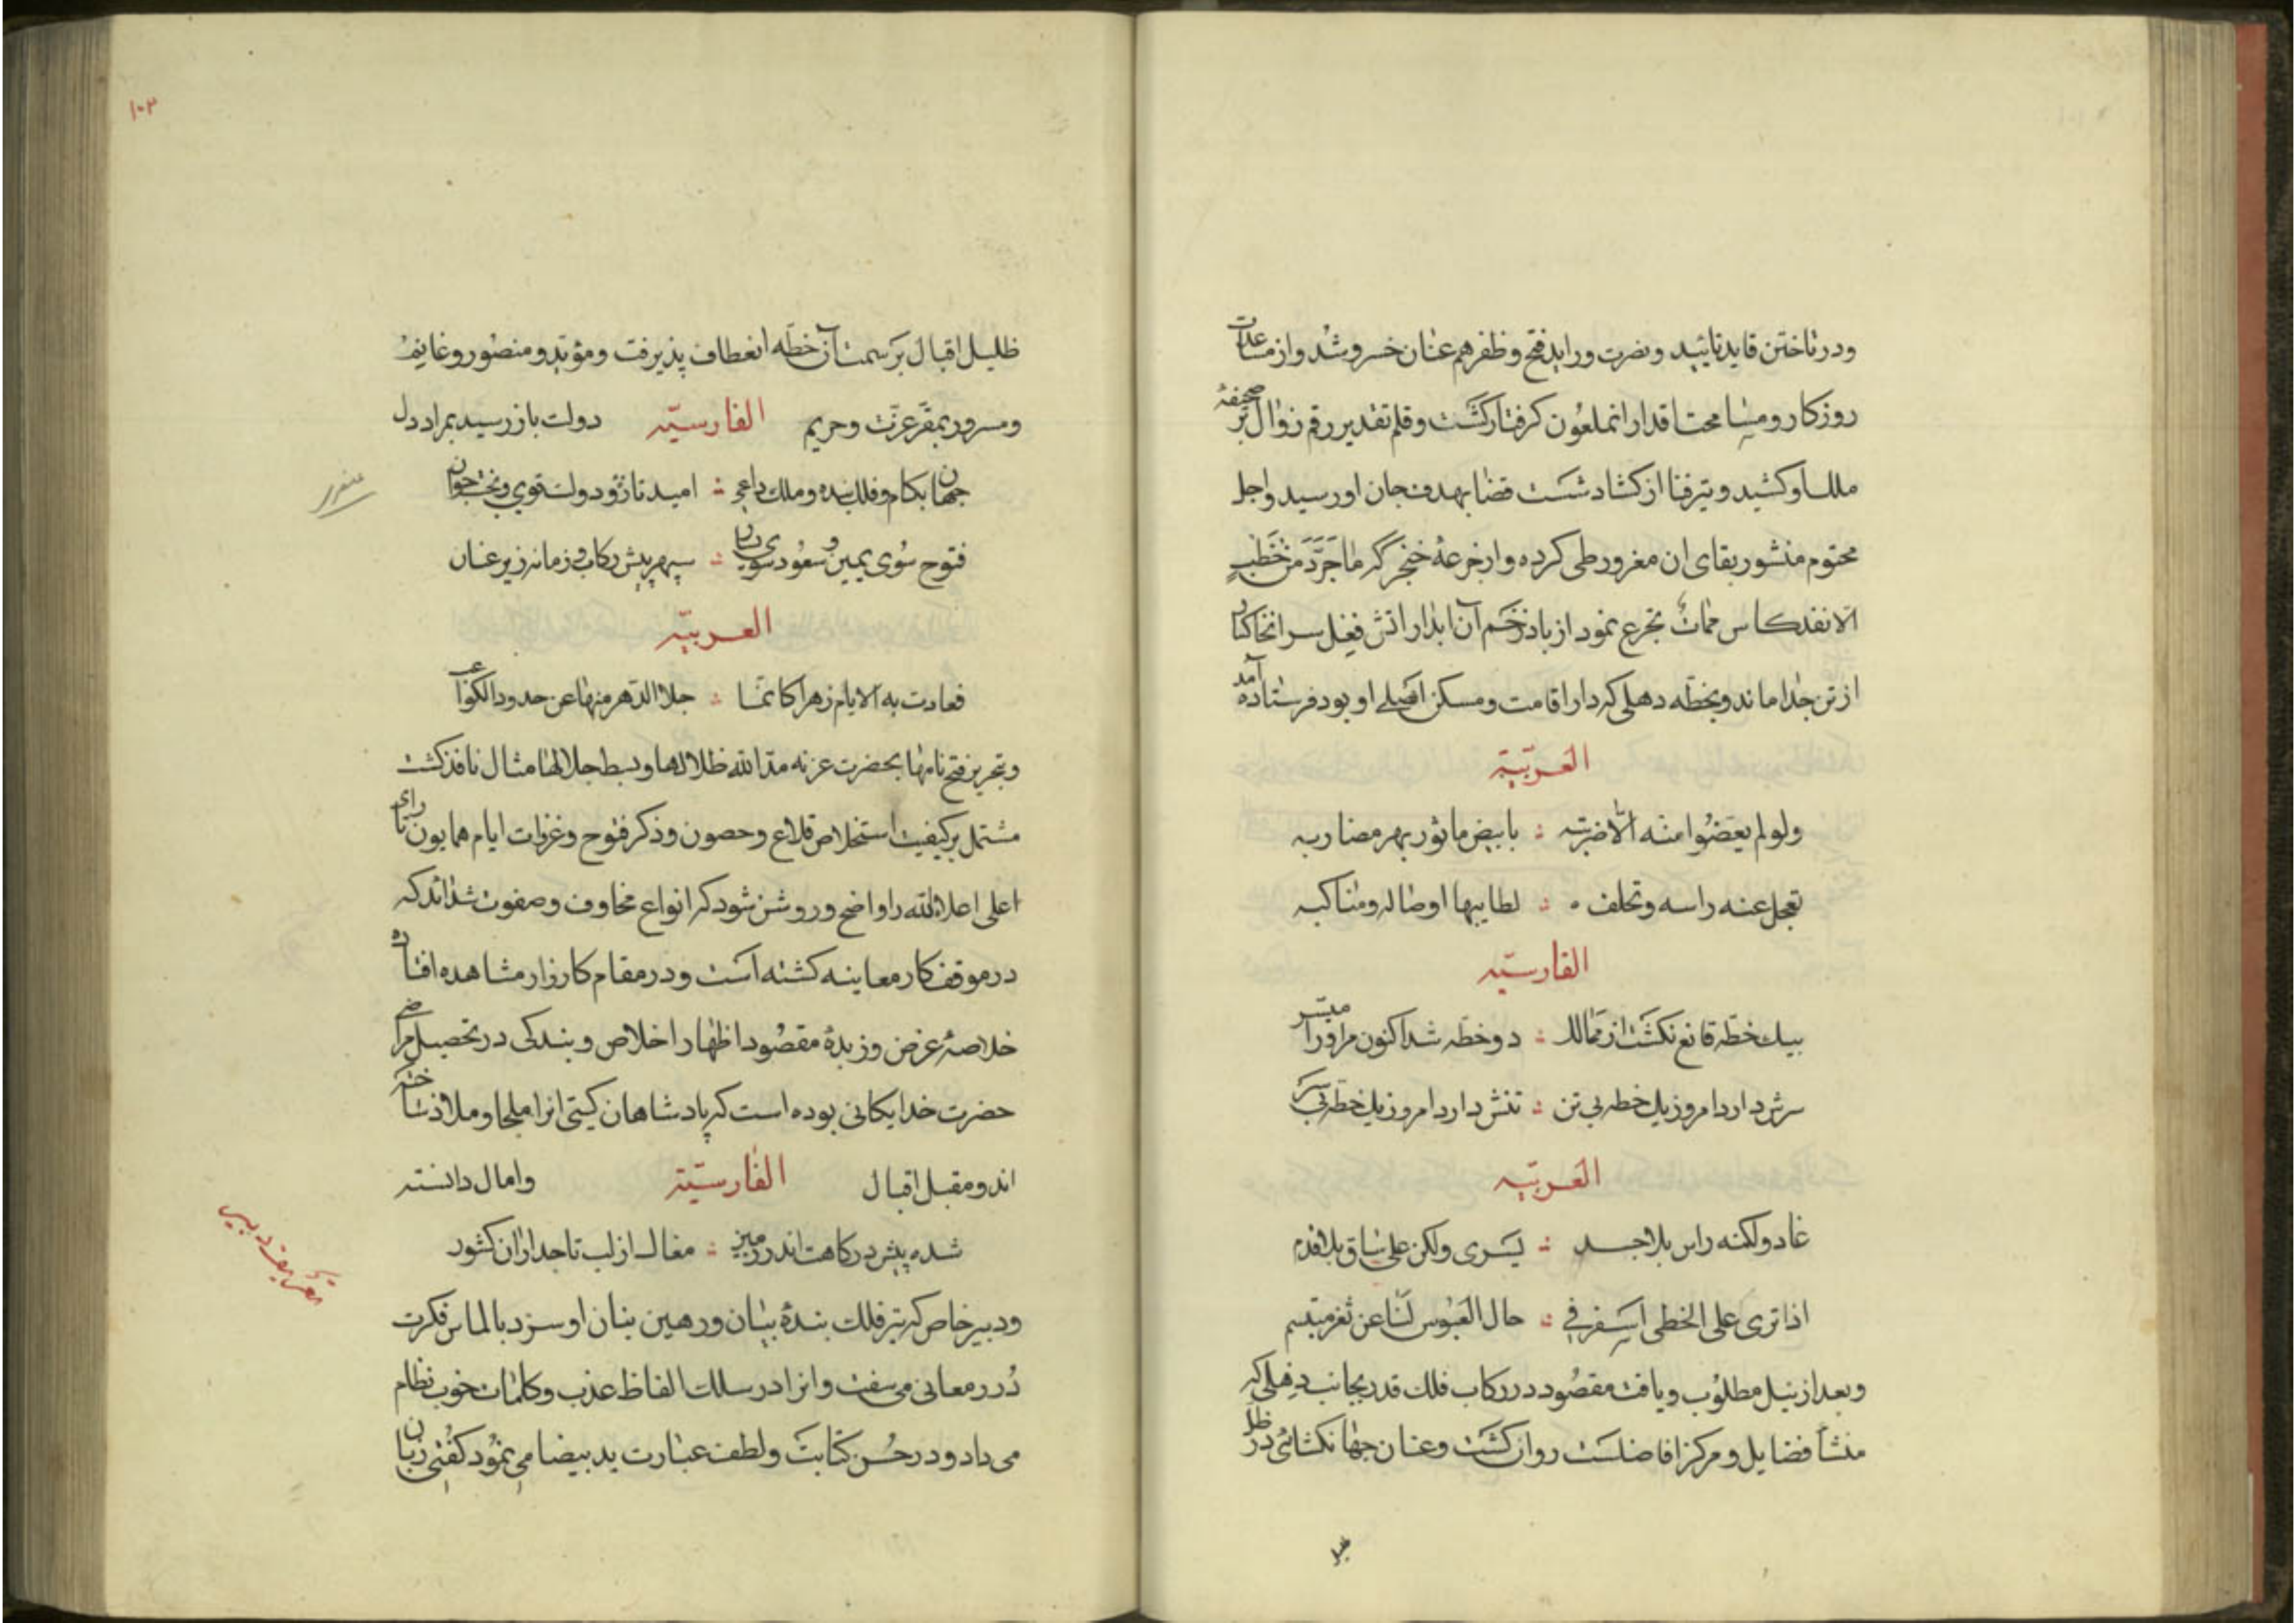 ودر تاختن قاید تایید ونصرت وراید فتح وظفر هم عنان خسرو شد واز مساعدات
روزکار ومسامحت اقدار انملعون کرفتار کشت وقلم تقدیر رقم زوال بر صحیفهٔ
ملک او کشید وتیر فنا از کشاد شست قضا بهدف جان او رسید واجل
محتوم منشور بقای ان مغرور طی کرده واز جرعهٔ خنجر کر ما جَرَّدَ من خَطْبٍ
الا نفد کاس ممات تجرع نمود از باد زخم آن ابدار اتش فعل سر انخاکسار
از تن جدا ماند وبخطّه دهلی که دار اقامت ومسکن اصلی او بود فرستاده آمد
العربیّة
ولو لم یعضوا منه الّا ضربته ؞ بابیض ماثور بهر مضاربه
تعجل عنه راسه وتخلف ؞ لطایبها اوصاله ومناکبه
الفارسیّه
بیک خطّه قانع نکشت از ممالک ؞ دو خطّه شد اکنون مر اورا میسّر
سرش دارد امروز یک خطه بی تن ؞ تنش دارد امروز یک خطّه بی سر
العربیّه
غاد ولکنه راس بلا جسد ؞ یسری ولکن علی ساق بلا قدم
اذا تری علی الخطی اسفر فی ؞ حال العبوس لنا عن ثغر مبتسم
وبعد از نیل مطلوب ویافت مقصود در رکاب فلک قدر بجانب دهلی که
منشأ فضایل ومرکز افاضلست روان کشت وعنان جهانکشائی در ظل
ظلیل
١٠٢
ظلیل اقبال بر سمت آن خطّه انعطاف پذیرفت ومؤیّد ومنصور وغانم
ومسرور بمقرّ عزّت وحریم الفارسیّه دولت باز رسید بمراد دل
جهان بکام وفلک بنده وملک داعی ؞ امید تازه ودولت قوی وبخت جوان
فتوح سوی یمین وسعود سوی یسار ؞ سپهر پیش رکاب وزمانه زیر عنان
العربیّه
فعادت به الایام زهرا کانمّا ؞ جلا الدّهر منها عن خدود الکواعب
وبتحریر فتح نامها بحضرت غزنه مدّ الله ظلالها وبسط جلالها مثال نافذ کشت
مشتمل بر کیفیت استخلاص قلاع وحصون وذکر فتوح وغزوات ایام همایون تا رای
اعلی اعلاه الله را واضح وروشن شود که انواع مخاوف وصفوف شداید که
در موقف کار معاینه کشته است ودر مقام کارزار مشاهده افتاده
خلاصهٔ غرض وزبدهٔ مقصود اظهار اخلاص وبندکی در تحصیل مراضی
حضرت خدایکانی بوده است که پادشاهان کیتی انرا ملجا وملاذ ساخته
اند ومقبل اقبال الفارسیّة وامال دانسته
شده پیش درکاهت اندر زمین ؞ مغاک از لب تاجداران کشور
ودبیر خاص که تیر فلک بندهٔ بیان ورهین بنان او سزد بالماس فکرت
دُرر معانی می سفت وانرا در سلک الفاظ عذب وکلمات خوب نظام
می داد ودر حُسن کتابت ولطف عبارت ید بیضا می نمود کفتی زبان
تعریف دبیر